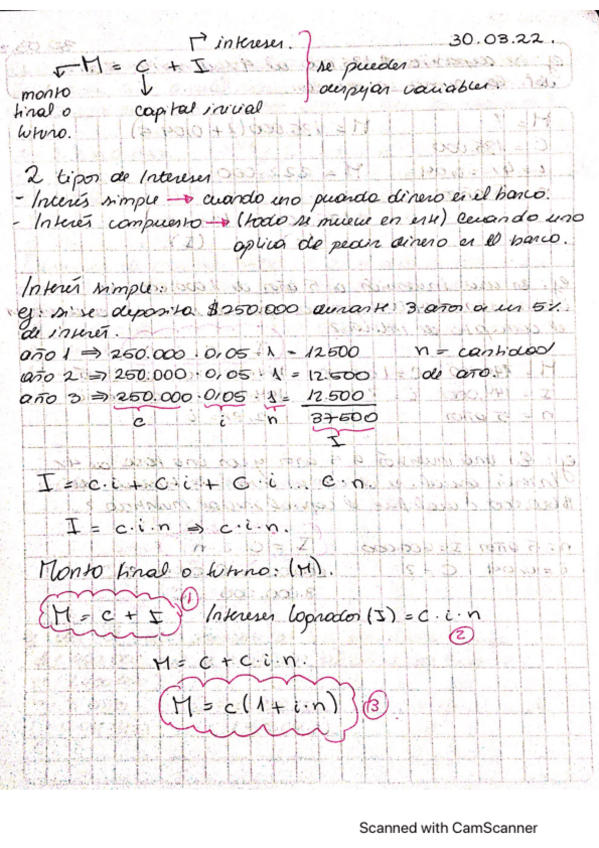 intereses.
30.03.22.
M = C + I
se pueden
despejar variables.
monto
final o
futuro.
capital inicial
2 tipos de Intereses
- Interés simple → cuando uno guarda dinero en el banco.
- Interés compuesto → (todo se mueve en este) Cuando uno
aplica de pedir dinero en el banco.
Interés simple:
ej: si se deposita $250.000 durante 3 años a un 5%
de interés.
año 1 ⇒ 250.000 · 0,05 · 1 = 12500 n = cantidad
año 2 ⇒ 250.000 · 0,05 · 1 = 12.500 de año.
año 3 ⇒ 250.000 · 0,05 · 1 = 12.500
c i n 37500
I
I = c·i + c·i + c·i ... c·n.
I = c·i·n ⇒ c·i·n.
Monto final o futuro: (M).
M = C + I ① Intereses logrados (I) = C · i · n
②
M = C + C·i·n.
M = c(1 + i·n) ③
Scanned with CamScanner